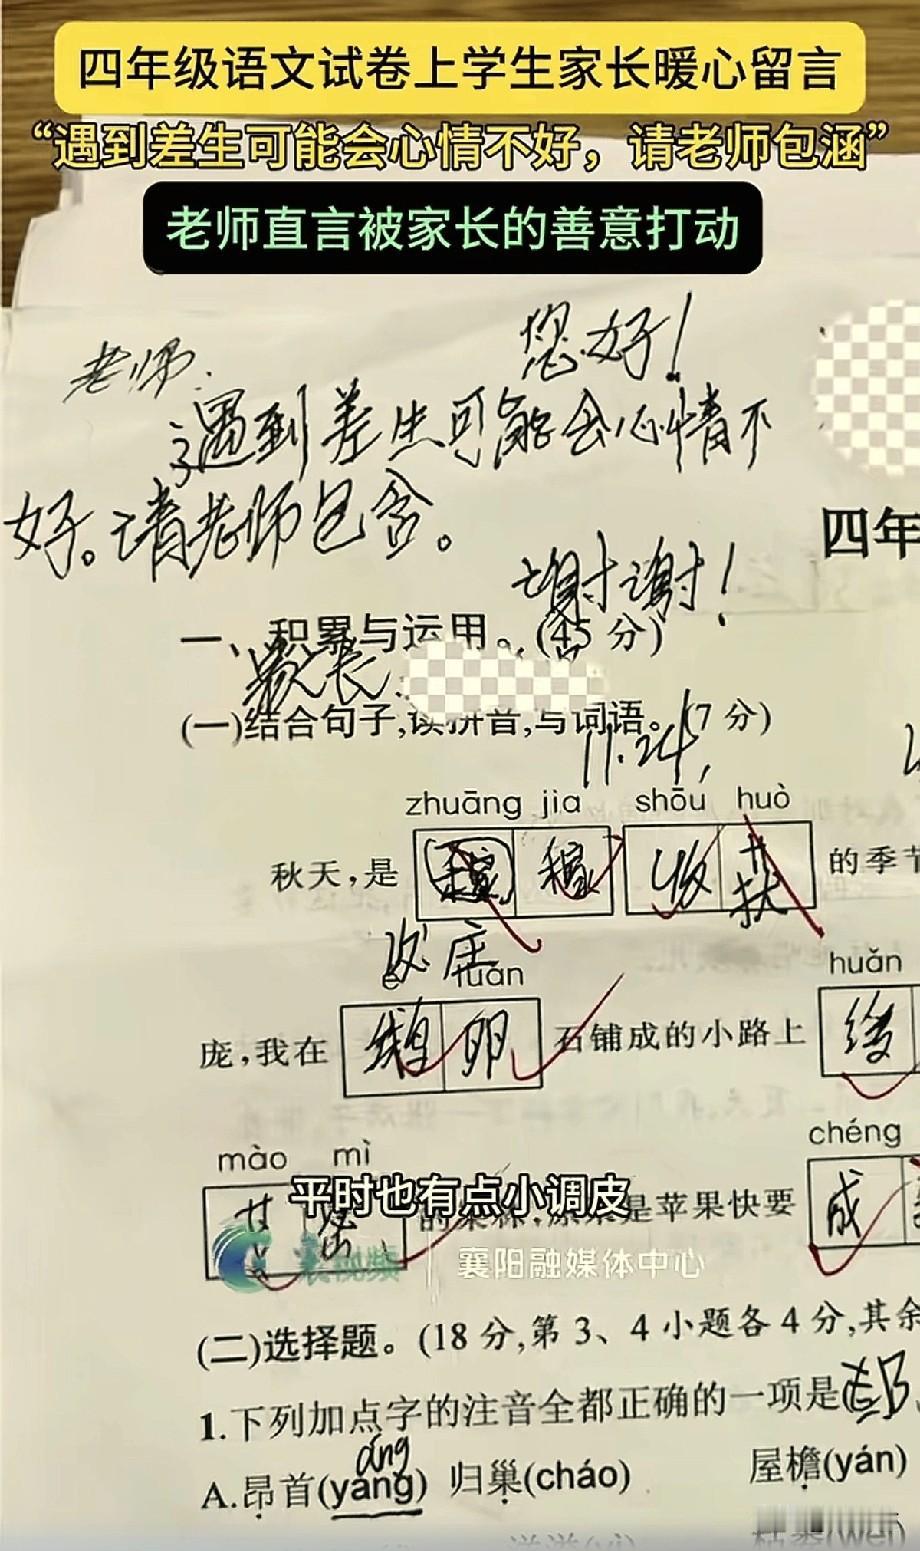 四年级语文试卷上学生家长暖心留言
“遇到差生可能会心情不好，请老师包涵”
老师直言被家长的善意打动
老师:
您好！
遇到差生可能会心情不
好。请老师包含。
四年
谢谢！
一、积累与运用。(45分)
家长
(一)结合句子,读拼音,写词语。(7分)
11.24
zhuāng jia shōu huò
秋天,是 稼 收 的季节
皮 庄
luǎn huǎn
庞,我在 鹅 卵 石铺成的小路上
mào mì chéng
平时也有点小调皮
密 是苹果快要 成
襄视频 襄阳融媒体中心
(二)选择题。(18分,第3、4小题各4分,其余
1.下列加点字的注音全都正确的一项是
áng
A.昂首(yáng) 归巢(cháo) 屋檐(yán)